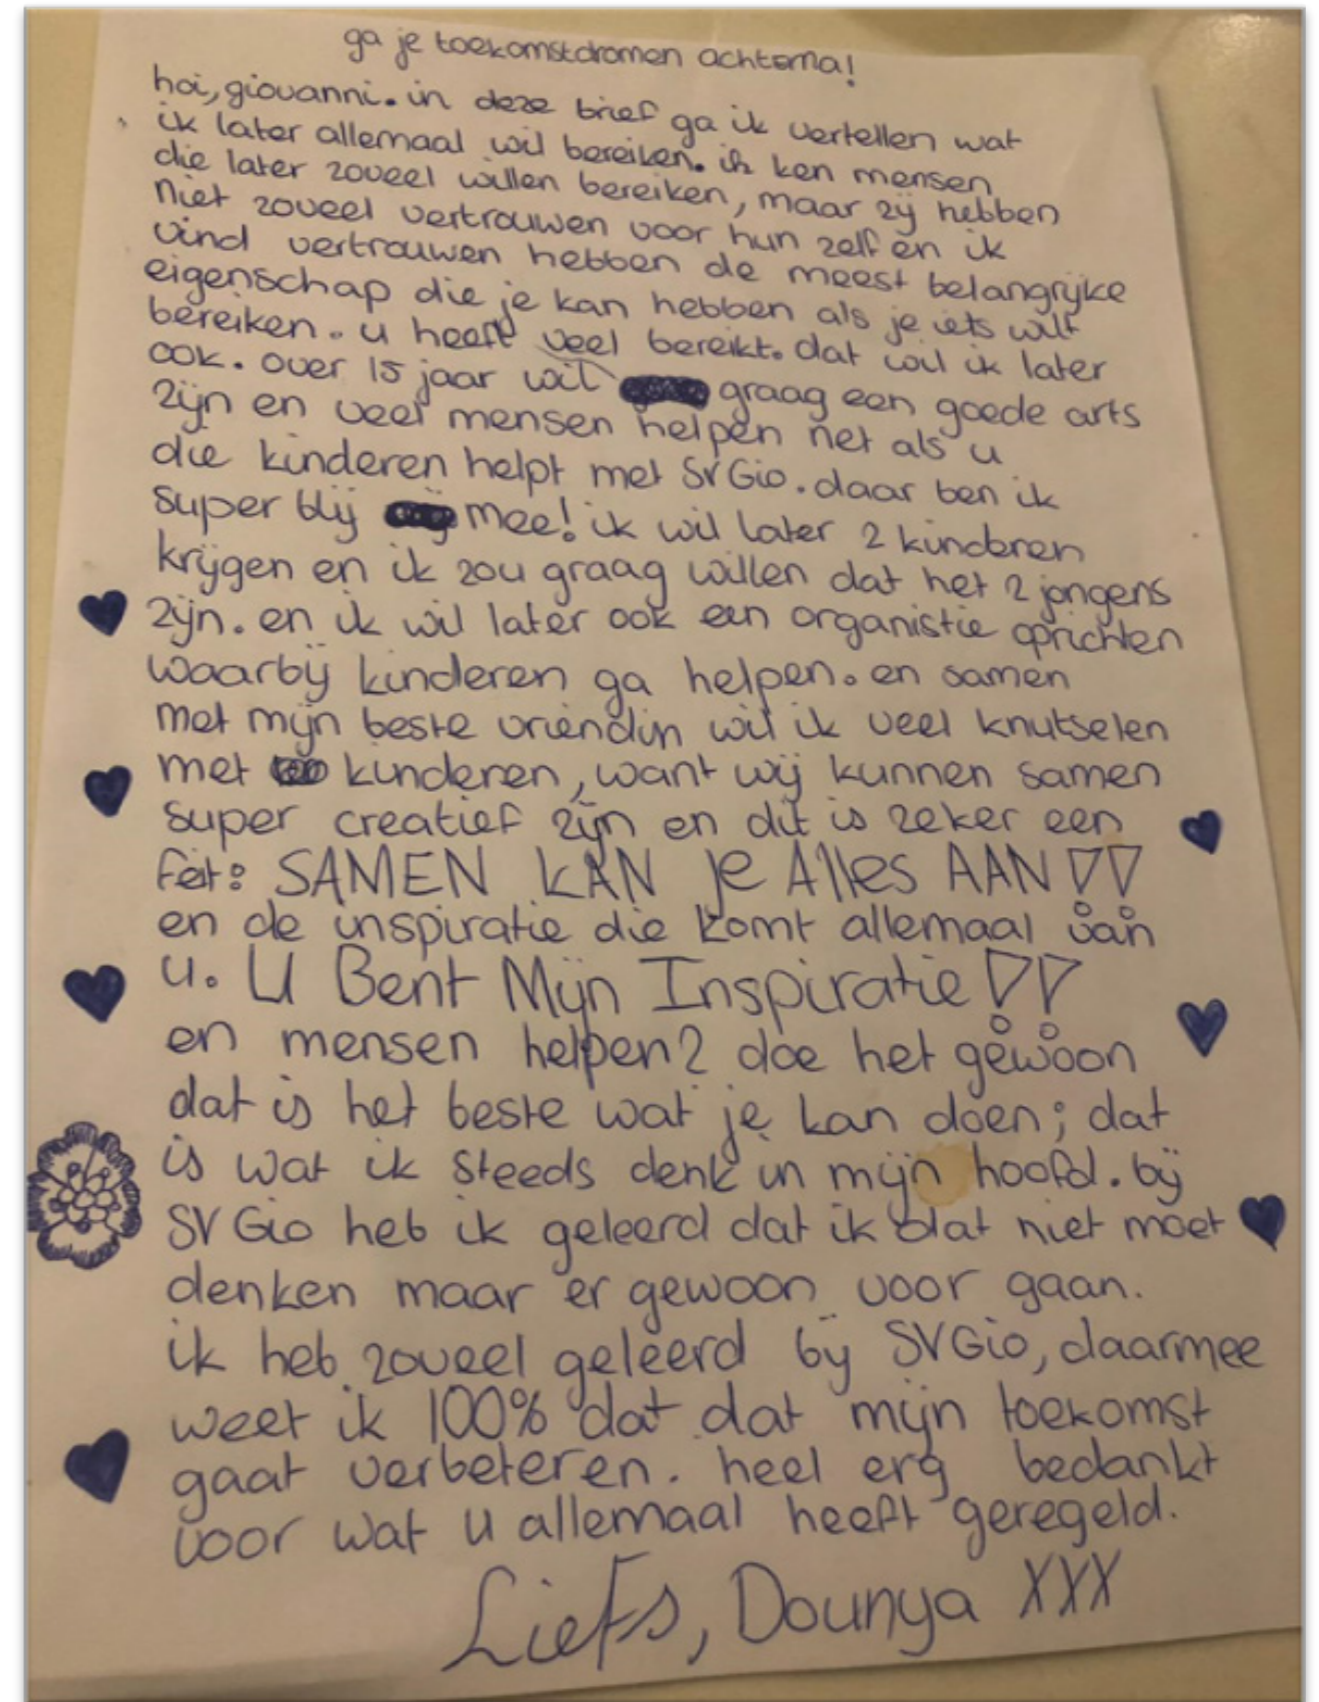 ga je toekomstdromen achterna!
hoi, giovanni. in deze brief ga ik vertellen wat
ik later allemaal wil bereiken. ik ken mensen
die later zoveel willen bereiken, maar zij hebben
niet zoveel vertrouwen voor hun zelf en ik
vind vertrouwen hebben de meest belangrijke
eigenschap die je kan hebben als je iets wilt
bereiken. u heeft veel bereikt. dat wil ik later
ook. over 15 jaar wil graag een goede arts
zijn en veel mensen helpen net als u
die kinderen helpt met SVGio. daar ben ik
super blij mee! ik wil later 2 kinderen
krijgen en ik zou graag willen dat het 2 jongens
zijn. en ik wil later ook een organistie oprichten
waarbij kinderen ga helpen. en samen
met mijn beste vriendin wil ik veel knutselen
met kinderen, want wij kunnen samen
super creatief zijn en dit is zeker een
feit: SAMEN KAN je Alles AAN!!
en de inspiratie die komt allemaal van
u. U Bent Mijn Inspiratie!!
en mensen helpen? doe het gewoon
dat is het beste wat je kan doen; dat
is wat ik steeds denk in mijn hoofd. bij
SV Gio heb ik geleerd dat ik dat niet moet
denken maar er gewoon voor gaan.
ik heb zoveel geleerd bij SVGio, daarmee
weet ik 100% dat dat mijn toekomst
gaat verbeteren. heel erg bedankt
voor wat u allemaal heeft geregeld.
Liefs, Dounya XXX